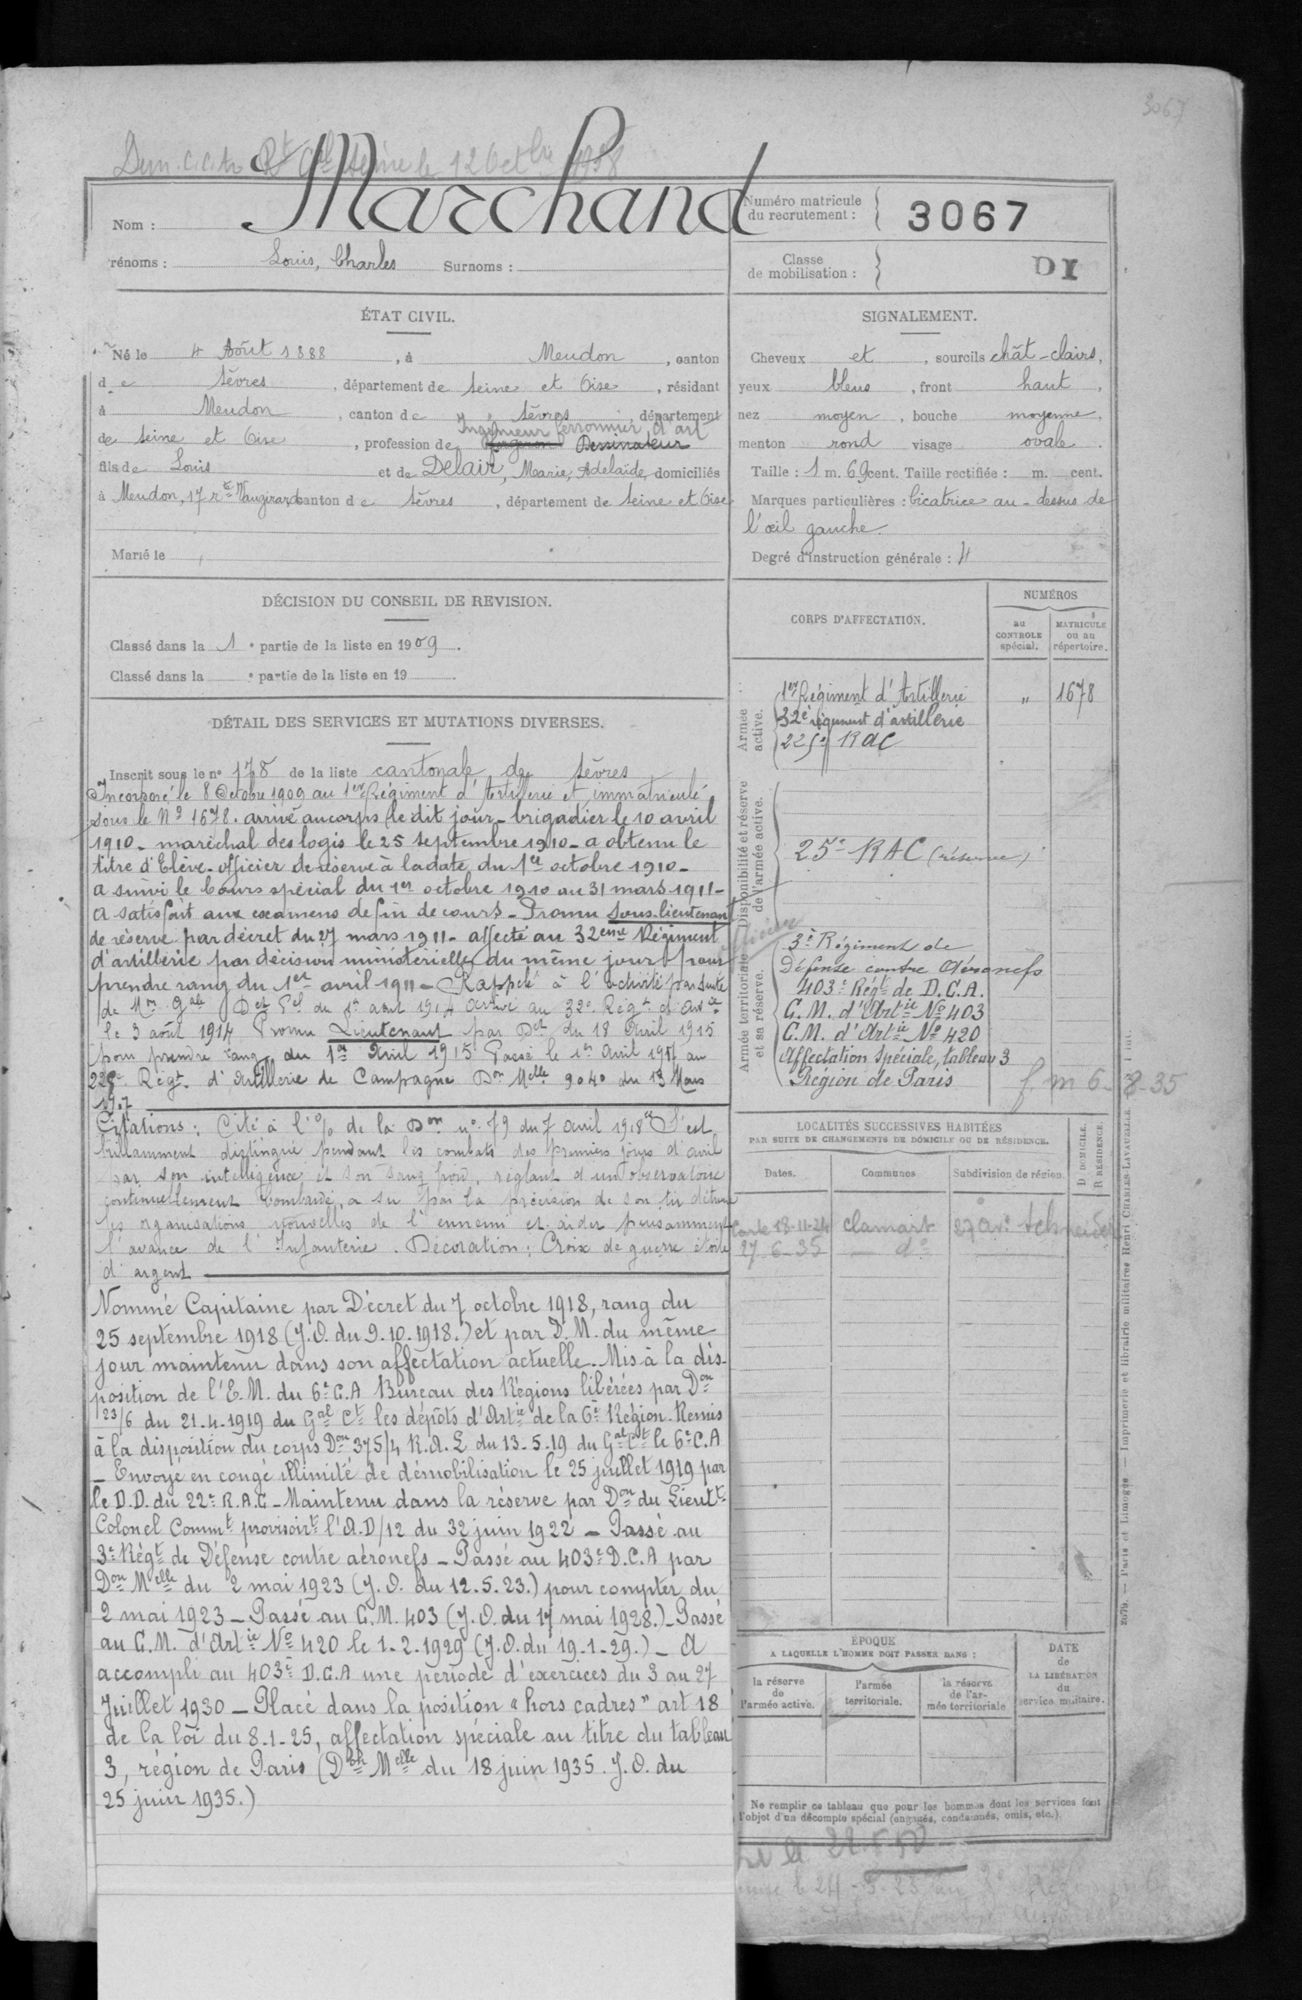 3067
Marchand
Nom :
Numéro matricule
du recrutement :
3067
rénoms : Louis, Charles Surnoms :
Classe
de mobilisation :
DI
ÉTAT CIVIL.
Né le 4 Août 1888, à Meudon, canton
de Sèvres, département de Seine et Oise, résidant
à Meudon, canton de Sèvres département
Ingénieur ferronnier d'art
de Seine et Oise, profession de Dessinateur
fils de Louis et de Delair, Marie, Adelaïde, domiciliés
à Meudon, 17 rte Vaugirard, canton de Sèvres, département de Seine et Oise
Marié le
SIGNALEMENT.
Cheveux et, sourcils chât-clairs,
yeux bleus, front haut,
nez moyen, bouche moyenne,
menton rond visage ovale.
Taille : 1 m. 69 cent. Taille rectifiée : m. cent.
Marques particulières : Cicatrice au-dessus de
l'œil gauche.
Degré d'instruction générale : 4
DÉCISION DU CONSEIL DE REVISION.
Classé dans la 1e partie de la liste en 1909.
Classé dans la e partie de la liste en 19 .
DÉTAIL DES SERVICES ET MUTATIONS DIVERSES.
Inscrit sous le no 178 de la liste cantonale de Sèvres
Incorporé le 8 Octobre 1909 au 1er Régiment d'Artillerie et immatriculé
sous le No 1678. arrivé au corps le dit jour - brigadier le 10 avril
1910 - maréchal des logis le 25 septembre 1910 - a obtenu le
titre d'Elève-officier de réserve à la date du 1er octobre 1910 -
a suivi le Cours spécial du 1er octobre 1910 au 31 mars 1911 -
a satisfait aux examens de fin de cours - Promu sous-lieutenant
de réserve par décret du 27 mars 1911 - affecté au 32ème Régiment
d'artillerie par décision ministérielle du même jour pour
prendre rang du 1er avril 1911 - Rappelé à l'activité par suite
de Mon Gale Det Pel du 1er août 1914 arrivé au 32e Régt d'Artie
le 3 août 1914 Promu Lieutenant par Det du 18 Avril 1915
pour prendre rang du 1er Avril 1915 Passé le 1er Avril 1917 au
225e Régt d'Artillerie de Campagne Don Melle 9040 du 13 Mars
1917
Citations : Cité à l'O/ de la Don no 79 du 7 avril 1918 "S'est
brillamment distingué pendant les combats des premiers jours d'avril
par son intelligence et son sang froid, réglant d'un observatoire
continuellement bombardé, a su par la précision de son tir détruire
les organisations nouvelles de l'ennemi et aider puissamment
l'avance de l'Infanterie. Décoration : Croix de guerre étoile
d'argent
Nommé Capitaine par Décret du 7 octobre 1918, rang du
25 septembre 1918 (J.O. du 9.10.1918.) et par D.M. du même
jour maintenu dans son affectation actuelle. Mis à la dis-
position de l'E.M. du 6e C.A Bureau des Régions libérées par Don
123/6 du 21.4.1919 du Gal Ct les dépôts d'Artie de la 6e Région. Remis
à la disposition du corps Don 375/4 R.A.L du 13-5-19 du Gal Ct le 6e C.A
- Envoyé en congé illimité de démobilisation le 25 juillet 1919 par
le D.D. du 22e R.A.C - Maintenu dans la réserve par Don du Lieutt
Colonel Commt provisoirt l'A.D/12 du 32 juin 1922 - Passé au
3e Régt de Défense contre aéronefs - Passé au 403e D.C.A par
Don Melle du 2 mai 1923 (J.O. du 12.5.23.) pour compter du
2 mai 1923 - Passé au C.M. 403 (J.O. du 17 mai 1928.) - Passé
au C.M. d'Artie No 420 le 1-2-1929 (J.O. du 19-1-29.) - A
accompli au 403e D.C.A une période d'exercices du 3 au 27
Juillet 1930 - Placé dans la position "hors cadres" art 18
de la loi du 8-1-25, affectation spéciale au titre du tableau
3, région de Paris (Don Melle du 18 juin 1935. J.O. du
25 juin 1935.)
CORPS D'AFFECTATION.
NUMÉROS
au
CONTROLE
spécial.
MATRICULE
ou au
répertoire.
Armée
active.
1er Régiment d'Artillerie " 1678
32e régiment d'artillerie
225e RAC
Disponibilité et réserve
de l'armée active.
25e RAC (réserve)
officier
Armée territoriale
et sa réserve.
3e Régiment de
Défense contre Aéronefs
403e Régt de D.C.A.
C.M. d'Artie No 403
C.M. d'Artie No 420
Affectation Spéciale, tableau 3
Région de Paris
f. m 6-8-35
LOCALITÉS SUCCESSIVES HABITÉES
PAR SUITE DE CHANGEMENTS DE DOMICILE OU DE RÉSIDENCE.
Dates. Communes Subdivision de région.
D. DOMICILE.
R. RÉSIDENCE.
Carte 18-11-24 Clamart 27 av. Schneider
27-6-35 do
ÉPOQUE
A LAQUELLE L'HOMME DOIT PASSER DANS :
la réserve
de
l'armée active.
l'armée
territoriale.
la réserve
de l'ar-
mée territoriale
DATE
de
LA LIBÉRATION
du
service militaire.
Ne remplir ce tableau que pour les hommes dont les services font
l'objet d'un décompte spécial (engagés, condamnés, omis, etc.).
2079. — Paris et Limoges — Imprimerie et librairie militaires Henri CHARLES-LAVAUZELLE